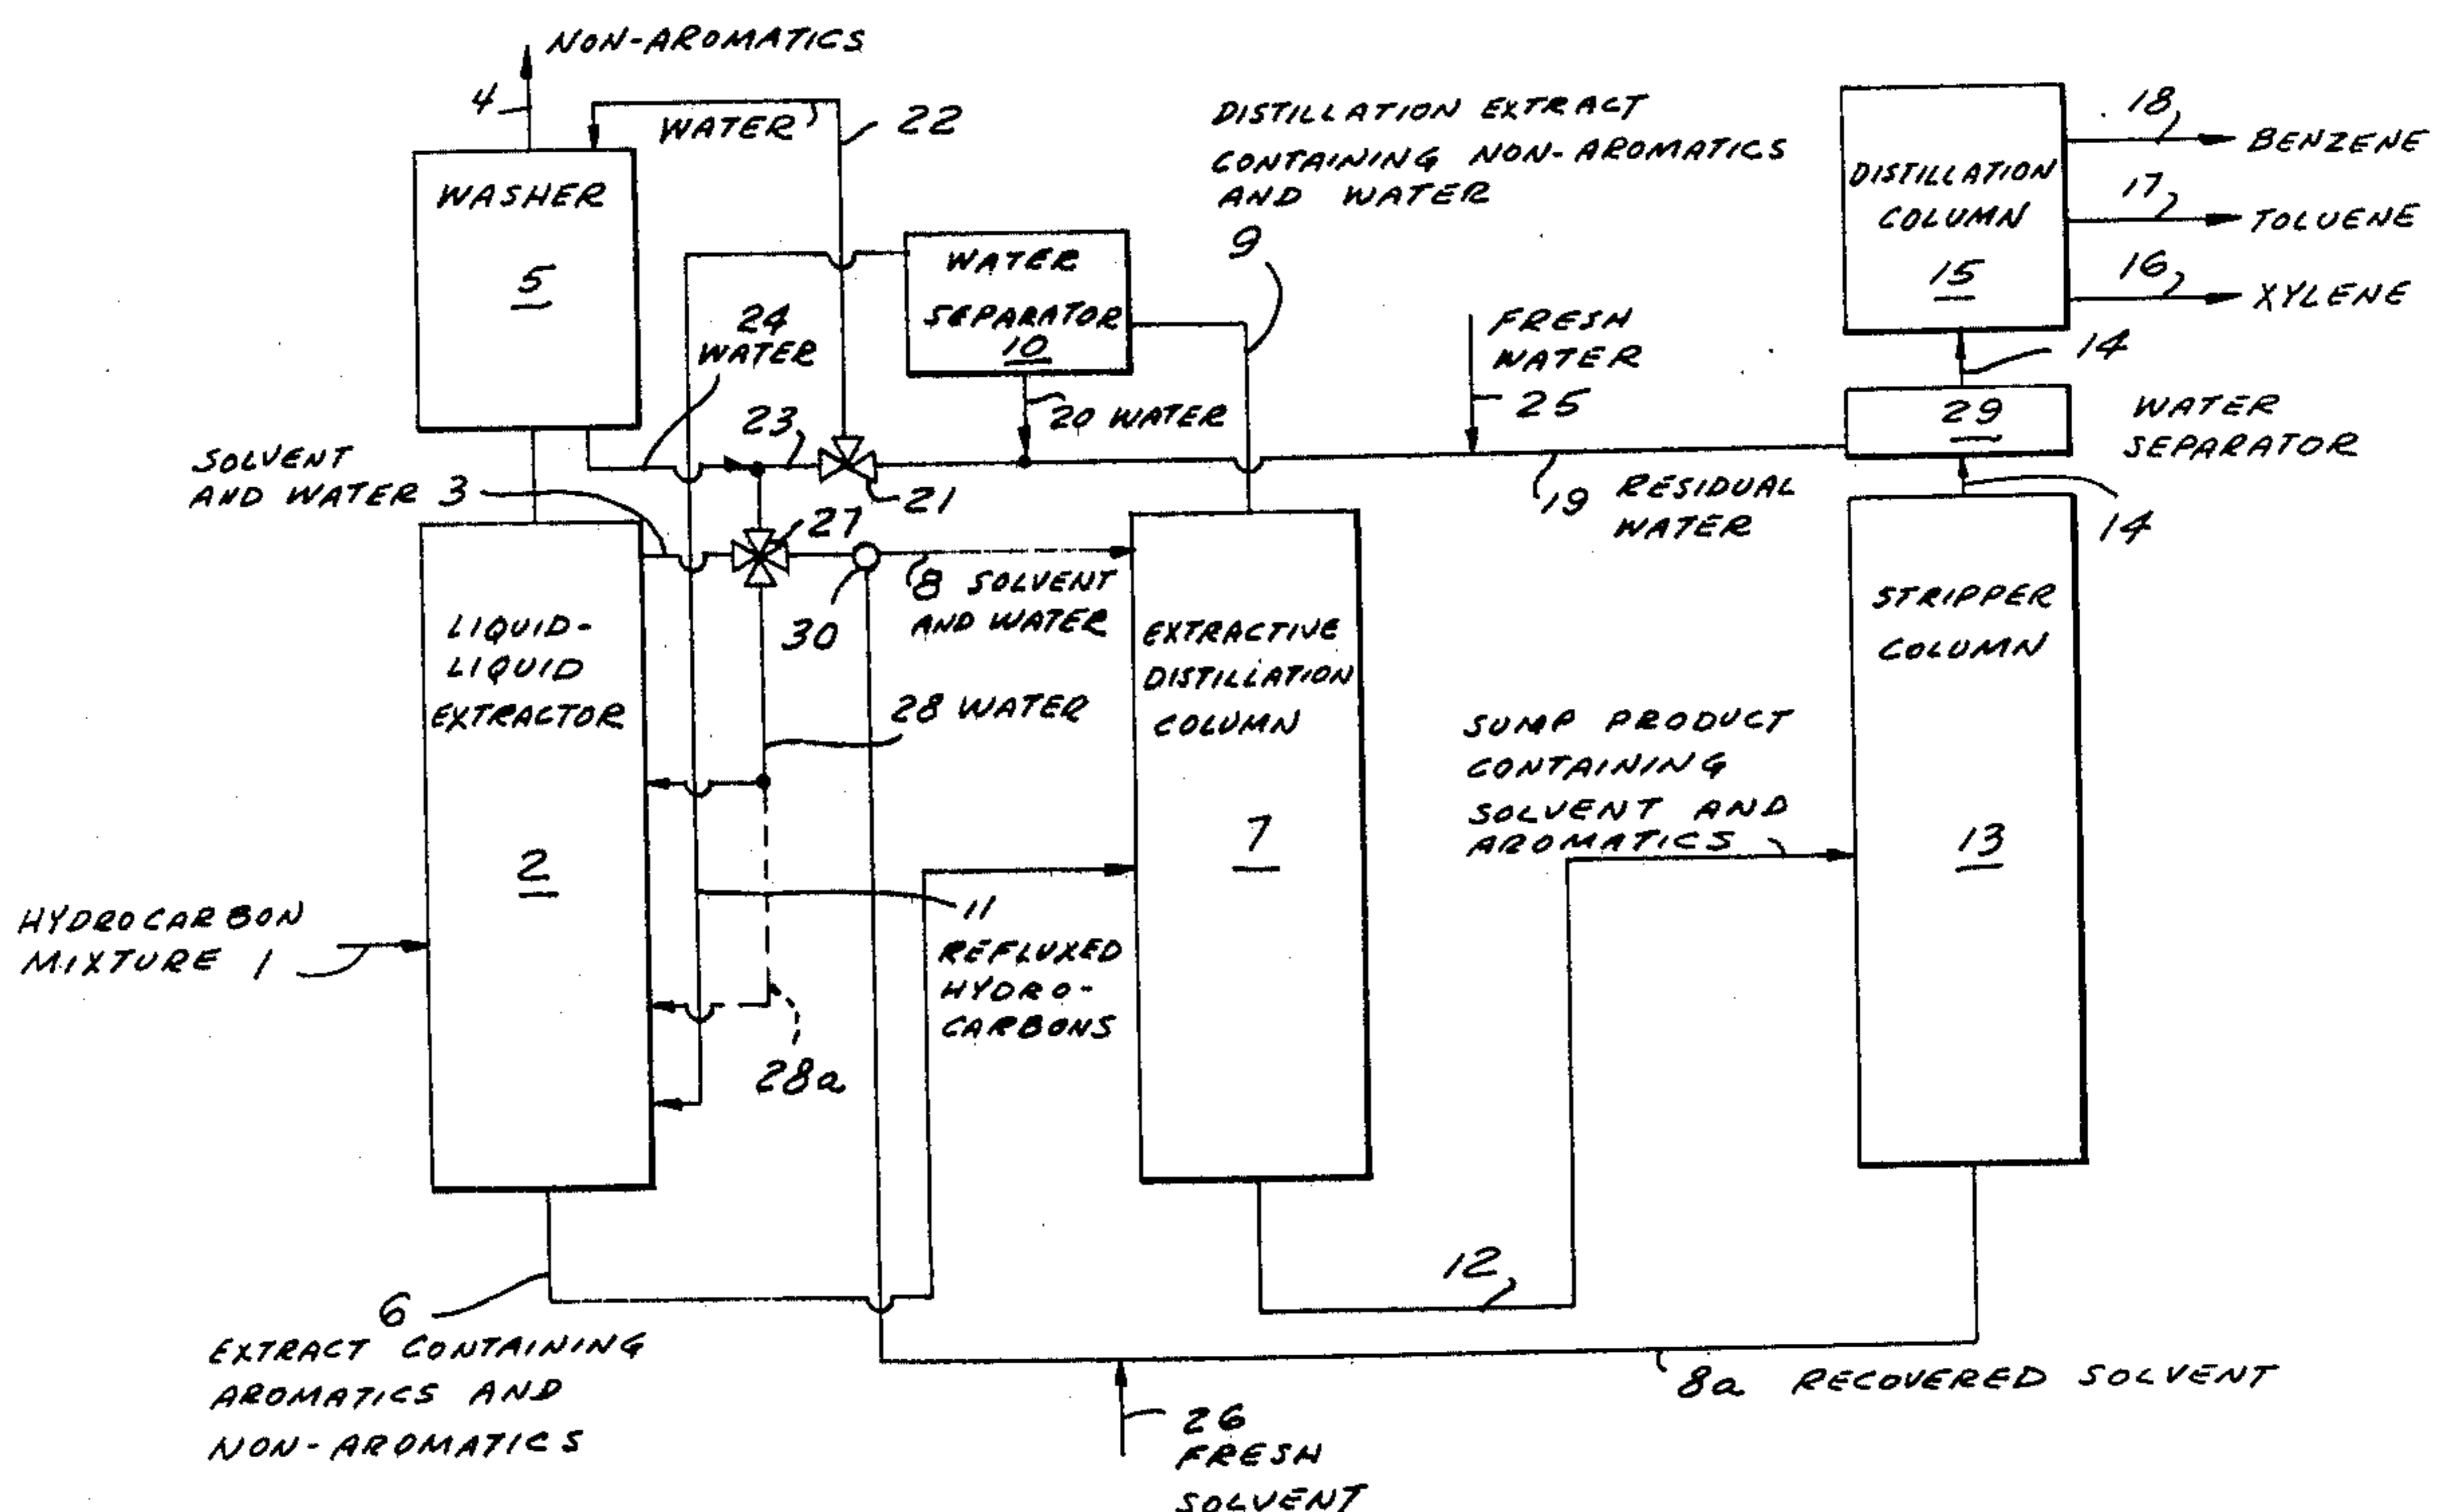 NON-AROMATICS
4
WATER
22
WASHER
5
DISTILLATION EXTRACT
CONTAINING NON-AROMATICS
AND WATER
9
18
BENZENE
17
TOLUENE
16
XYLENE
DISTILLATION
COLUMN
15
WATER
SEPARATOR
10
24
WATER
FRESH
WATER
25
14
29
WATER
SEPARATOR
23
20 WATER
21
19 RESIDUAL
WATER
14
SOLVENT
AND WATER 3
27
30
8 SOLVENT
AND WATER
LIQUID-
LIQUID
EXTRACTOR
2
EXTRACTIVE
DISTILLATION
COLUMN
7
STRIPPER
COLUMN
13
28 WATER
SUMP PRODUCT
CONTAINING
SOLVENT AND
AROMATICS
HYDROCARBON
MIXTURE 1
11
REFLUXED
HYDRO-
CARBONS
28a
12
6
EXTRACT CONTAINING
AROMATICS AND
NON-AROMATICS
8a RECOVERED SOLVENT
26
FRESH
SOLVENT